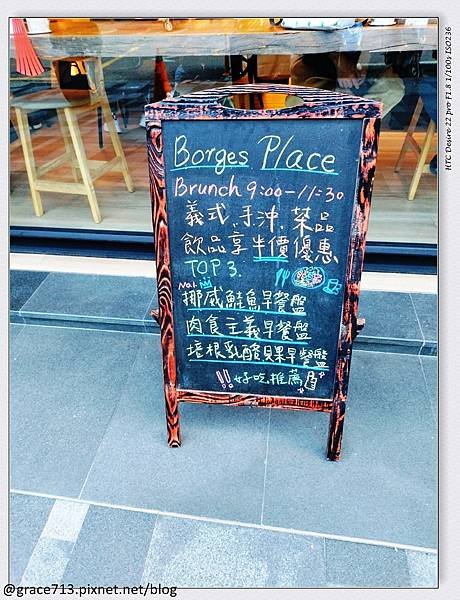 Borges Place
Brunch 9:00-11:30
義式.手沖.茶品
飲品享半價優惠
TOP 3.
No.1
挪威鮭魚早餐盤
肉食主義早餐盤
培根乳酸貝果早餐盤
!! 好吃推薦
HTC Desire 22 pro F1.8 1/100s ISO236
@grace713.pixnet.net/blog